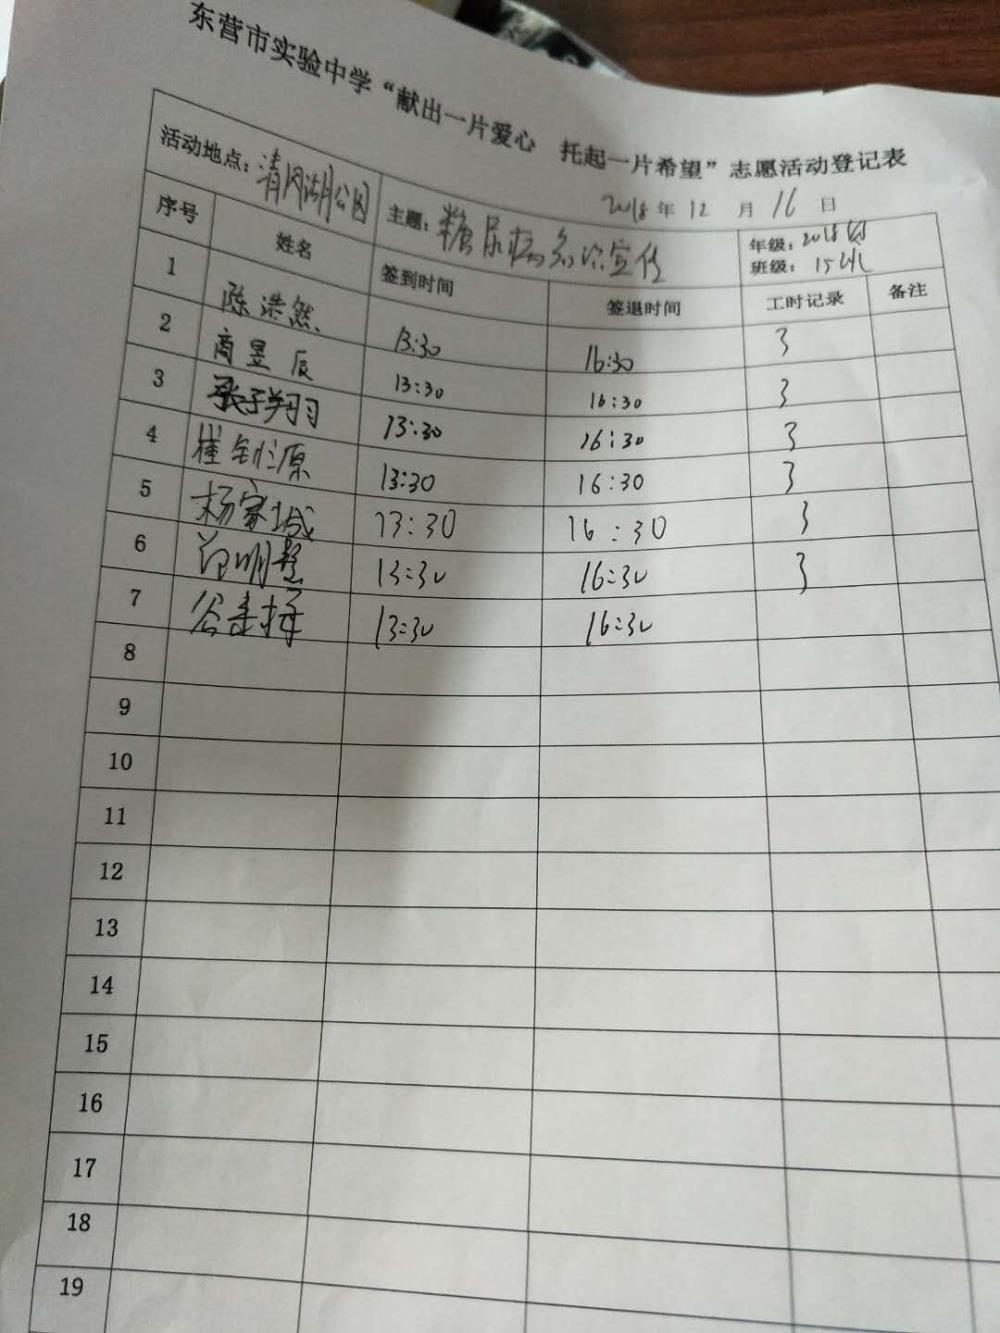 东营市实验中学“献出一片爱心 托起一片希望”志愿活动登记表
2018年12月16日
活动地点：清风湖公园 主题：糖尿病知识宣传 年级：2018级 班级：15班
序号 姓名 签到时间 签退时间 工时记录 备注
1 陈浩然 13:30 16:30 3
2 商昱辰 13:30 16:30 3
3 张子翔 13:30 16:30 3
4 崔 原 13:30 16:30 3
5 杨家城 13:30 16:30 3
6 明 13:30 16:30 3
7 谷 13:30 16:30
8
9
10
11
12
13
14
15
16
17
18
19